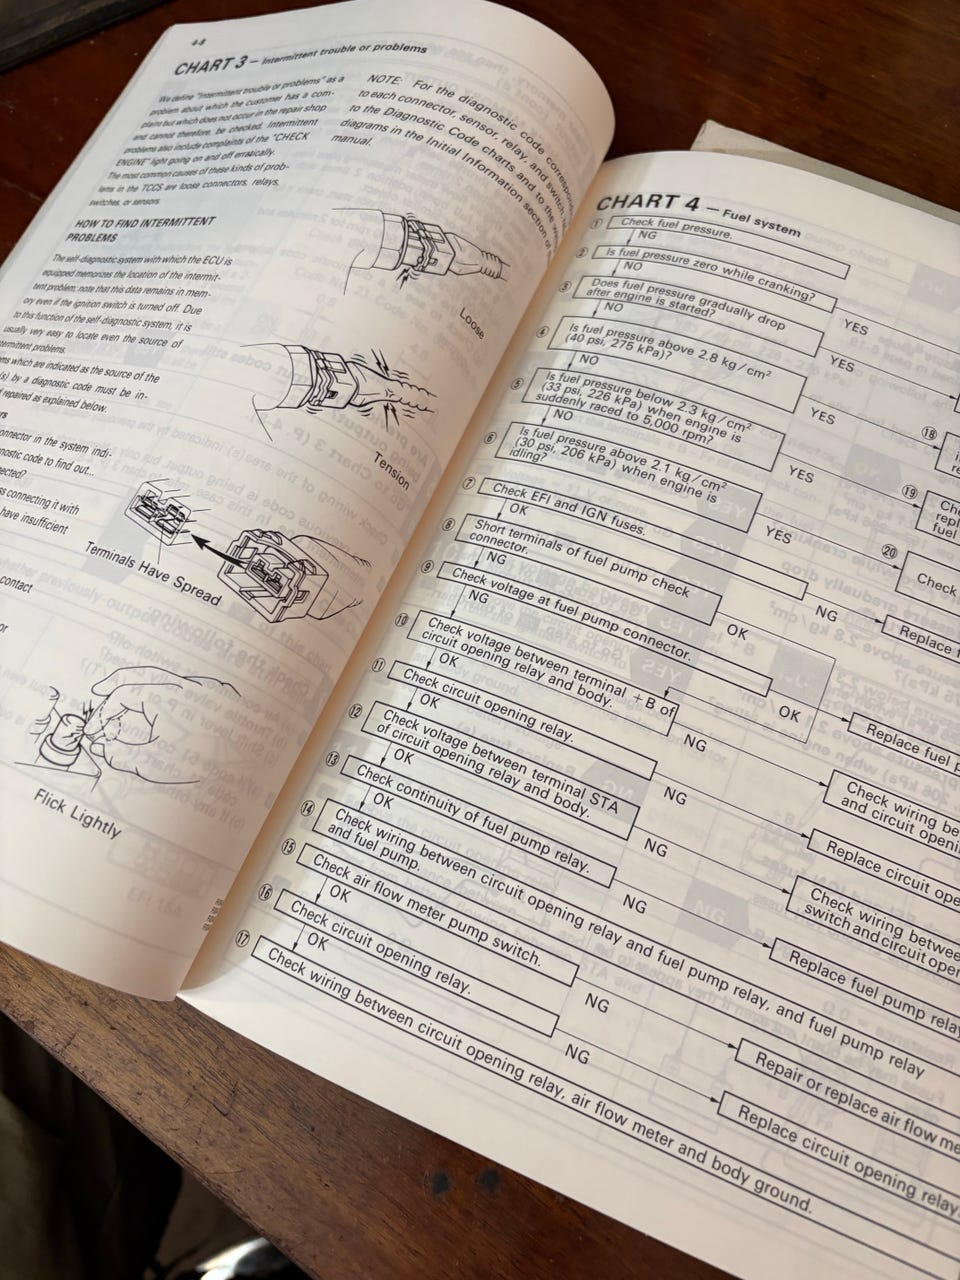 4-8
CHART 3 — Intermittent trouble or problems
We define "intermittent trouble or problems" as a
problem about which the customer has a com-
plaint but which does not occur in the repair shop
and cannot therefore, be checked. Intermittent
problems also include complaints of the "CHECK
ENGINE" light going on and off erratically.
The most common causes of these kinds of prob-
lems in the TCCS are loose connectors, relays,
switches, or sensors.
HOW TO FIND INTERMITTENT
PROBLEMS
The self-diagnostic system with which the ECU is
equipped memorizes the location of the intermit-
tent problem; note that this data remains in mem-
ory even if the ignition switch is turned off. Due
to this function of the self-diagnostic system, it is
usually very easy to locate even the source of
intermittent problems.
which are indicated as the source of the
(s) by a diagnostic code must be in-
repaired as explained below.
connector in the system indi-
code to find out...
connecting it with
have insufficient
contact
or
NOTE: For the diagnostic code
to each connector, sensor, relay, and switch,
to the Diagnostic Code charts and to the
diagrams in the Initial Information section of
manual.
Loose
Tension
Terminals Have Spread
Flick Lightly
CHART 4 — Fuel system
1 Check fuel pressure.
NG
2 Is fuel pressure zero while cranking?
YES
NO
3 Does fuel pressure gradually drop
after engine is started?
YES
NO
4 Is fuel pressure above 2.8 kg/cm²
(40 psi, 275 kPa)?
YES
NO
5 Is fuel pressure below 2.3 kg/cm²
(33 psi, 226 kPa) when engine is
suddenly raced to 5,000 rpm?
YES
NO
6 Is fuel pressure above 2.1 kg/cm²
(30 psi, 206 kPa) when engine is
idling?
YES
7 Check EFI and IGN fuses.
NG
Replace
OK
8 Short terminals of fuel pump check
connector.
OK
NG
9 Check voltage at fuel pump connector.
OK
Replace fuel
NG
10 Check voltage between terminal +B of
circuit opening relay and body.
NG
Check wiring
and circuit
OK
11 Check circuit opening relay.
NG
Replace circuit
OK
12 Check voltage between terminal STA
of circuit opening relay and body.
NG
Check wiring
switch and circuit
OK
13 Check continuity of fuel pump relay.
NG
Replace fuel pump
OK
14 Check wiring between circuit opening relay and fuel pump relay, and fuel pump relay
and fuel pump.
15 Check air flow meter pump switch.
NG
Repair or replace air flow
OK
16 Check circuit opening relay.
NG
Replace circuit opening relay.
OK
17 Check wiring between circuit opening relay, air flow meter and body ground.
18
19
fuel
20
Check